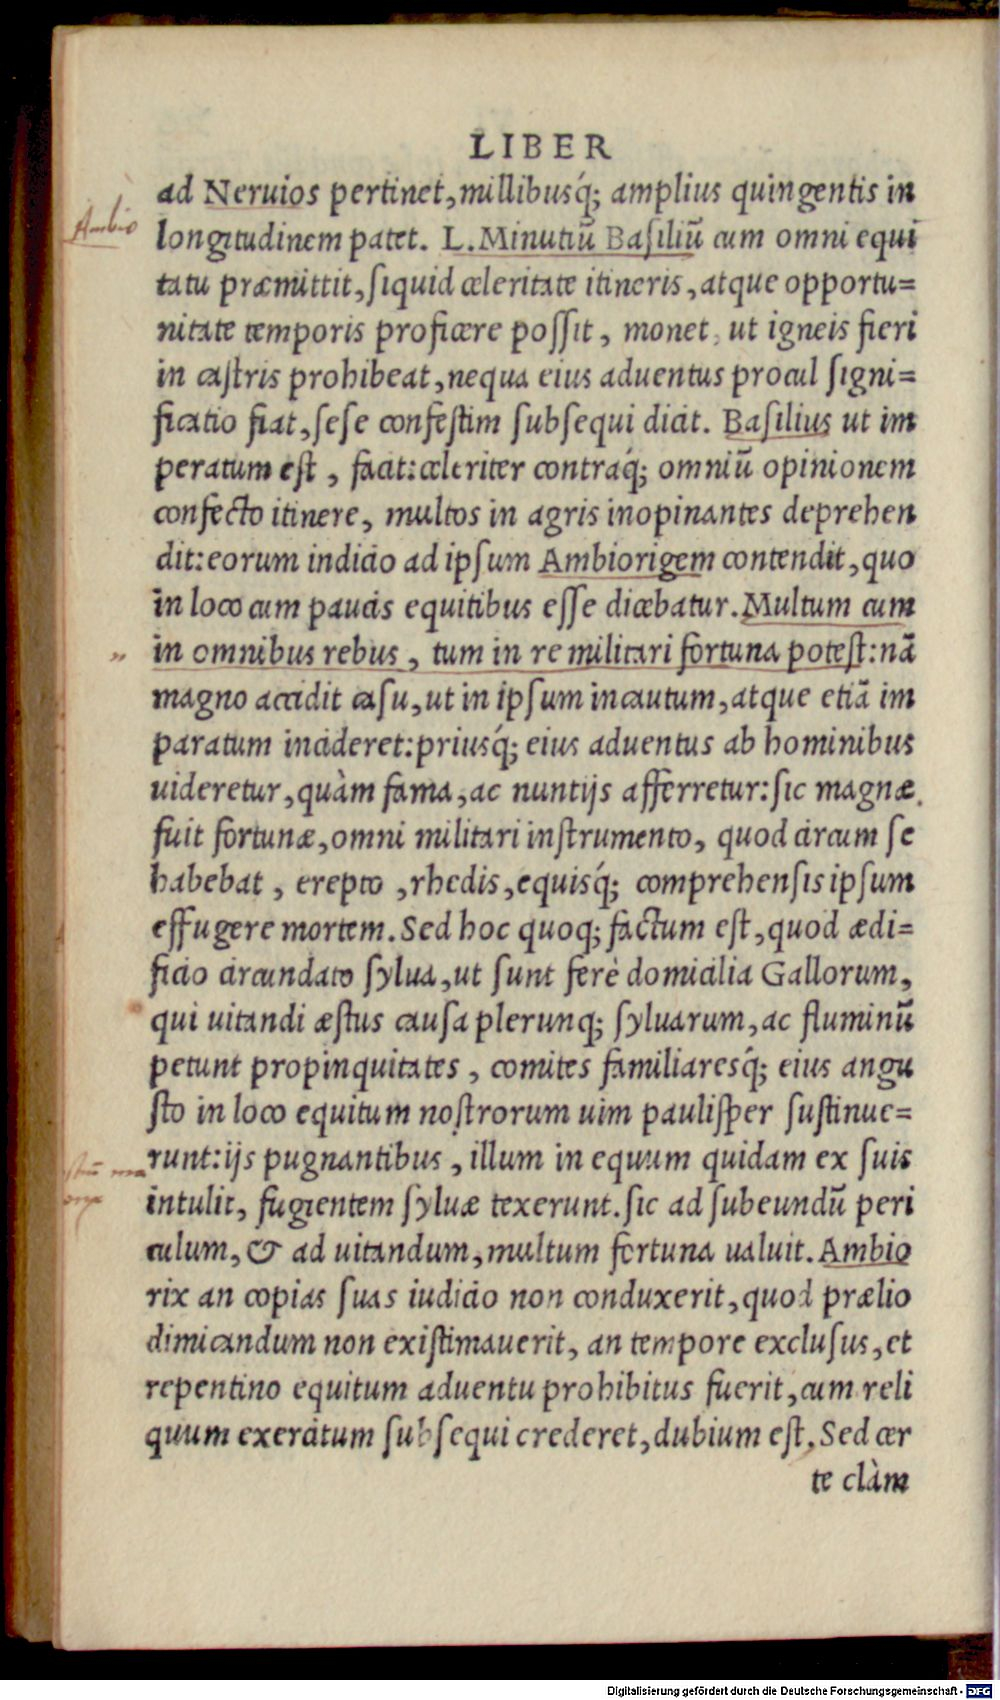 LIBER
ad Neruios pertinet, millibusq́; amplius quingentis in
Ambio
longitudinem patet. L. Minutiū Basiliū cum omni equi
tatu præmittit, siquid celeritate itineris, atque opportu=
nitate temporis proficere possit, monet, ut igneis fieri
in castris prohibeat, nequa eius aduentus procul signi=
ficatio fiat, sese confestim subsequi dicit. Basilius ut im
peratum est, facit: celeriter contraq́; omniū opinionem
confecto itinere, multos in agris inopinantes deprehen
dit: eorum indicio ad ipsum Ambiorigem contendit, quo
in loco cum paucis equitibus esse dicebatur. Multum cum
„ in omnibus rebus, tum in re militari fortuna potest: nā
magno accidit casu, ut in ipsum incautum, atque etiā im
paratum incideret: priusq́; eius aduentus ab hominibus
uideretur, quàm fama, ac nuntijs afferretur: sic magnæ
fuit fortunæ, omni militari instrumento, quod circum se
habebat, erepto, rhedis, equisq́; comprehensis ipsum
effugere mortem. Sed hoc quoq; factum est, quod ædi=
ficio circundato sylua, ut sunt ferè domicilia Gallorum,
qui uitandi æstus causa plerunq; syluarum, ac fluminū
petunt propinquitates, comites familiaresq́; eius angu
sto in loco equitum nostrorum uim paulisper sustinue=
runt: ijs pugnantibus, illum in equum quidam ex suis
intulit, fugientem syluæ texerunt. sic ad subeundū peri
culum, & ad uitandum, multum fortuna ualuit. Ambio
rix an copias suas iudicio non conduxerit, quod prælio
dimicandum non existimauerit, an tempore exclusus, et
repentino equitum aduentu prohibitus fuerit, cum reli
quum exercitum subsequi crederet, dubium est. Sed cer
te clàm
Digitalisierung gefördert durch die Deutsche Forschungsgemeinschaft - DFG